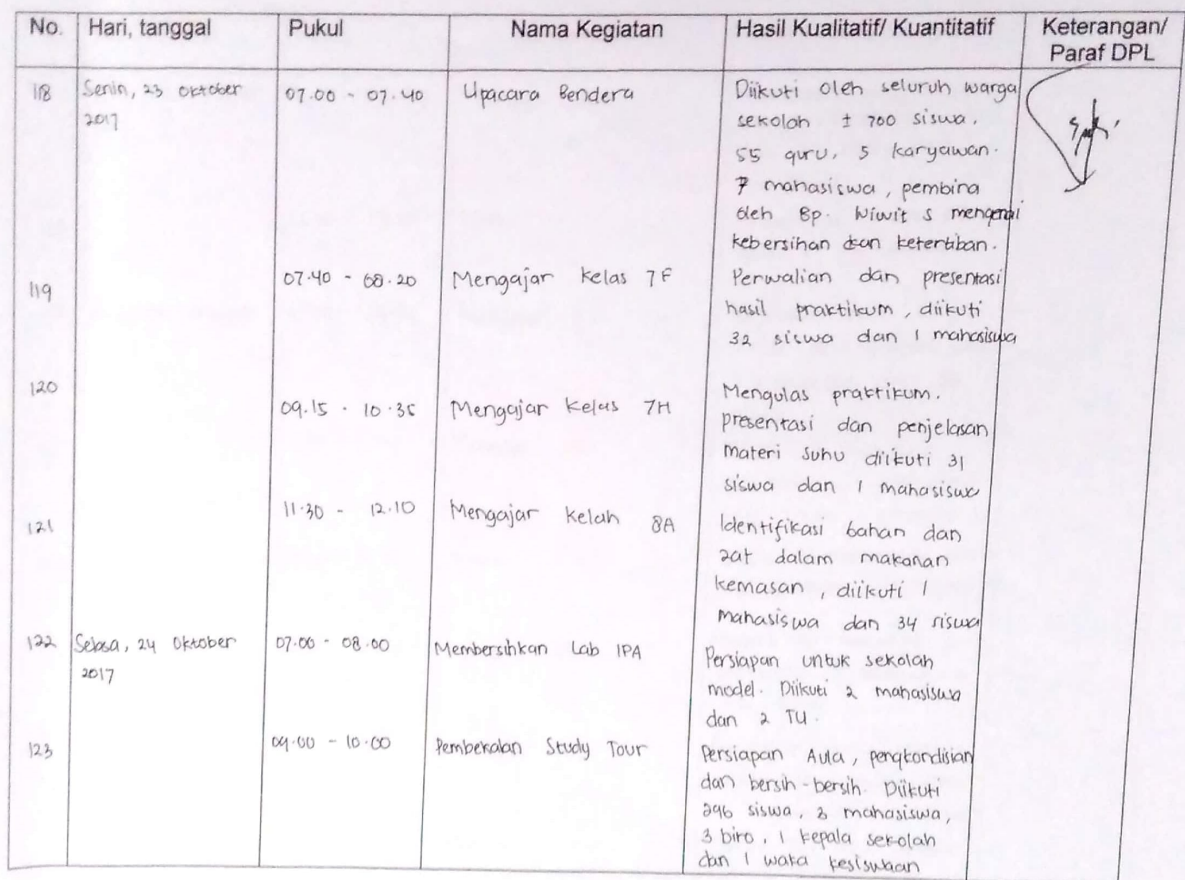 No. Hari, tanggal Pukul Nama Kegiatan Hasil Kualitatif/ Kuantitatif Keterangan/
Paraf DPL
118 Senin, 23 Oktober 07.00 - 07.40 Upacara Bendera Diikuti oleh seluruh warga
2017 sekolah ± 700 siswa.
55 guru, 5 karyawan.
7 mahasiswa, pembina
oleh Bp. Wiwit S mengenai
kebersihan dan ketertiban.
119 07.40 - 08.20 Mengajar kelas 7F Perwalian dan presentasi
hasil praktikum, diikuti
32 siswa dan 1 mahasiswa
120 09.15 - 10.35 Mengajar kelas 7H Mengulas praktikum.
presentasi dan penjelasan
materi suhu diikuti 31
siswa dan 1 mahasiswa
121 11.30 - 12.10 Mengajar kelah 8A Identifikasi bahan dan
zat dalam makanan
kemasan, diikuti 1
mahasiswa dan 34 siswa
122 Selasa, 24 Oktober 07.00 - 08.00 Membersihkan Lab IPA Persiapan untuk sekolah
2017 model. Diikuti 2 mahasiswa
dan 2 TU.
123 09.00 - 10.00 Pembekalan Study Tour Persiapan Aula, pengkondisian
dan bersih-bersih. Diikuti
296 siswa, 3 mahasiswa,
3 biro, 1 kepala sekolah
dan 1 waka kesiswaan